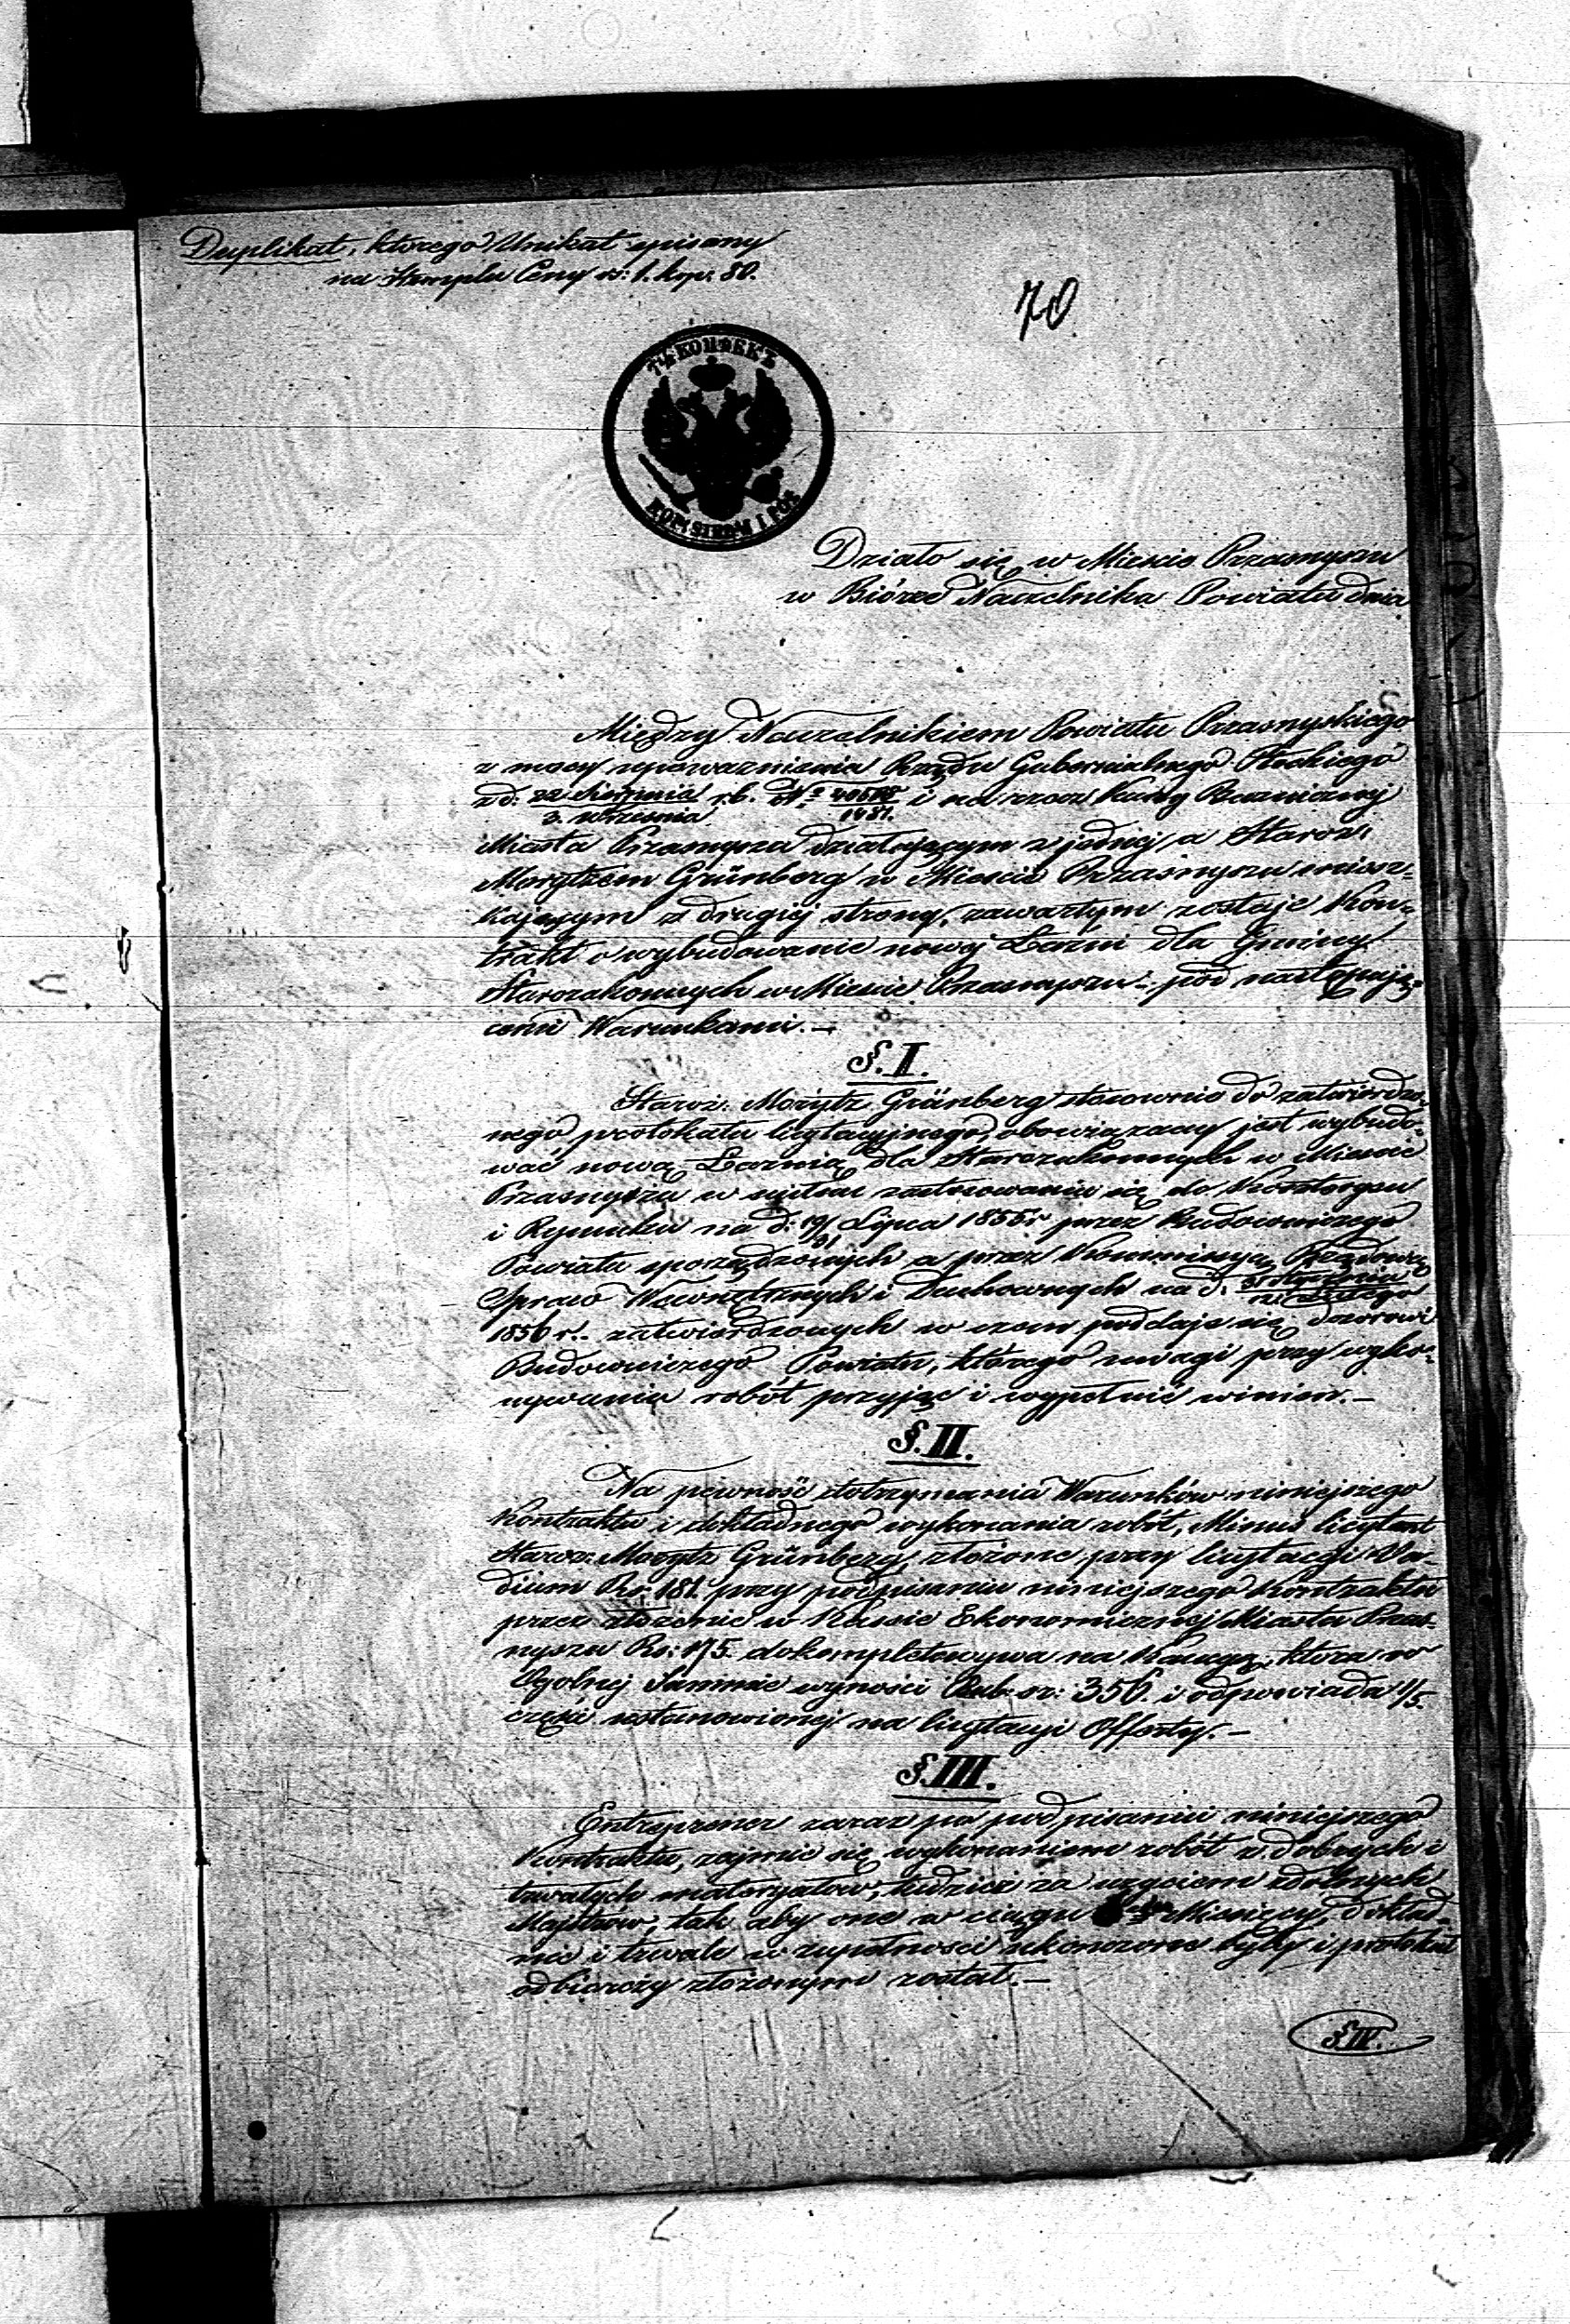 Duplikat, ktorego Unikat spisany
na Stemplu Ceny rs: 1. kop. 80.
70
7½ КОПѢЕКЪ
KOP: SREBREM I POŁ
Działo się w Miescie Przasnyszu
w Biórze Naczelnika Powiatu dnia
Między Naczelnikiem Powiatu Przasnyskiego
z mocy upoważnienia Rządu Gubernialnego Płockiego
z d: 22 Sierpnia / 3. Września r.b. N° i na rzecz Kassy Bożniczney
Miasta Przasnysza działającym z jedney a Staroz:
Morytzem Grünberg w Miescie Przasnyszu miesz-
kającym z drugiéj strony, zawartym zostaje Kon-
trakt o wybudowanie nowej Łaźni dla Gminy
Starozakonnych w Miescie Przasnyszu pod następują-
cemi Warunkami. —
§. I.
Staroz: Morytz Grünberg stosownie do zatwierdzo-
nego protokułu licytacyjnego, obowiązany jest wybudo-
wać nową Łaznią dla Starozakonnych w Miescie
Przasnyszu w scisłem zastosowaniu się do Kosztorysu
i Rysunku na d: 19/31 Lipca 1855 r przez Budowniczego
Powiatu sporządzonych a przez Kommissyą Rządową
Spraw Wewnętrznych i Duchownych na d. 31 Stycznia / 12 Lutego
1856 r. zatwierdzonych w czem poddaje się dozorowi
Budowniczego Powiatu, którego uwagi przy wyko-
nywaniu robót przyjąć i wypełnić winien. —
§. II.
Na pewność dotrzymania Warunków niniejszego
Kontraktu i dokładnego wykonania robót, Minus licytant
Staroz: Morytz Grünberg, złożone przy licytacyi Va-
dium Rs. 181. przy podpisaniu niniejszego Kontraktu
przez złożenie w Kassie Ekonomicznej Miasta Przas-
nysza Rs: 175. dokompletowywa na Kaucyą, która w
Ogolnej Summie wynosi Rub. sr: 356. i odpowiada 1/5.
części ustanowionej na licytacyi Offerty. —
§. III.
Entreprener zaraz po podpisaniu niniejszego
Kontraktu, zajmie się wykonaniem robót z dobrych i
trwałych materyałów, tudzież za użyciem zdolnych
Majstrów, tak aby one w ciągu Miesięcy, dokład-
nie i trwale w zupełności ukończone były i protokuł
odbiorczy złożonym został. —
§. IV.